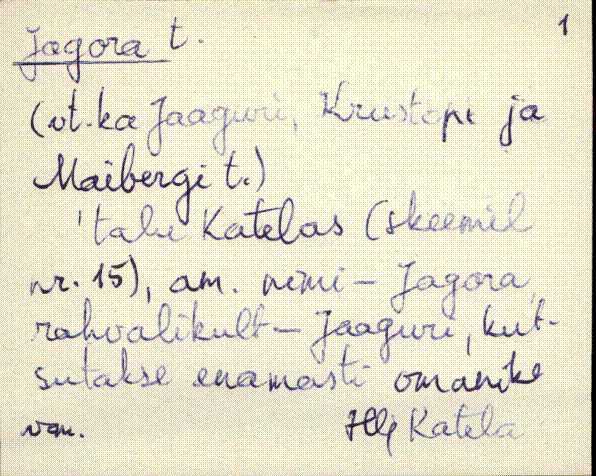 1
Jagora t.
(vt. ka Jaaguri, Krustopi ja
Maibergi t.)
'talu Katelas (skeemil
nr. 15), am. nimi – Jagora,
rahvalikult – Jaaguri, kut-
sutakse enamasti omanike
Katela